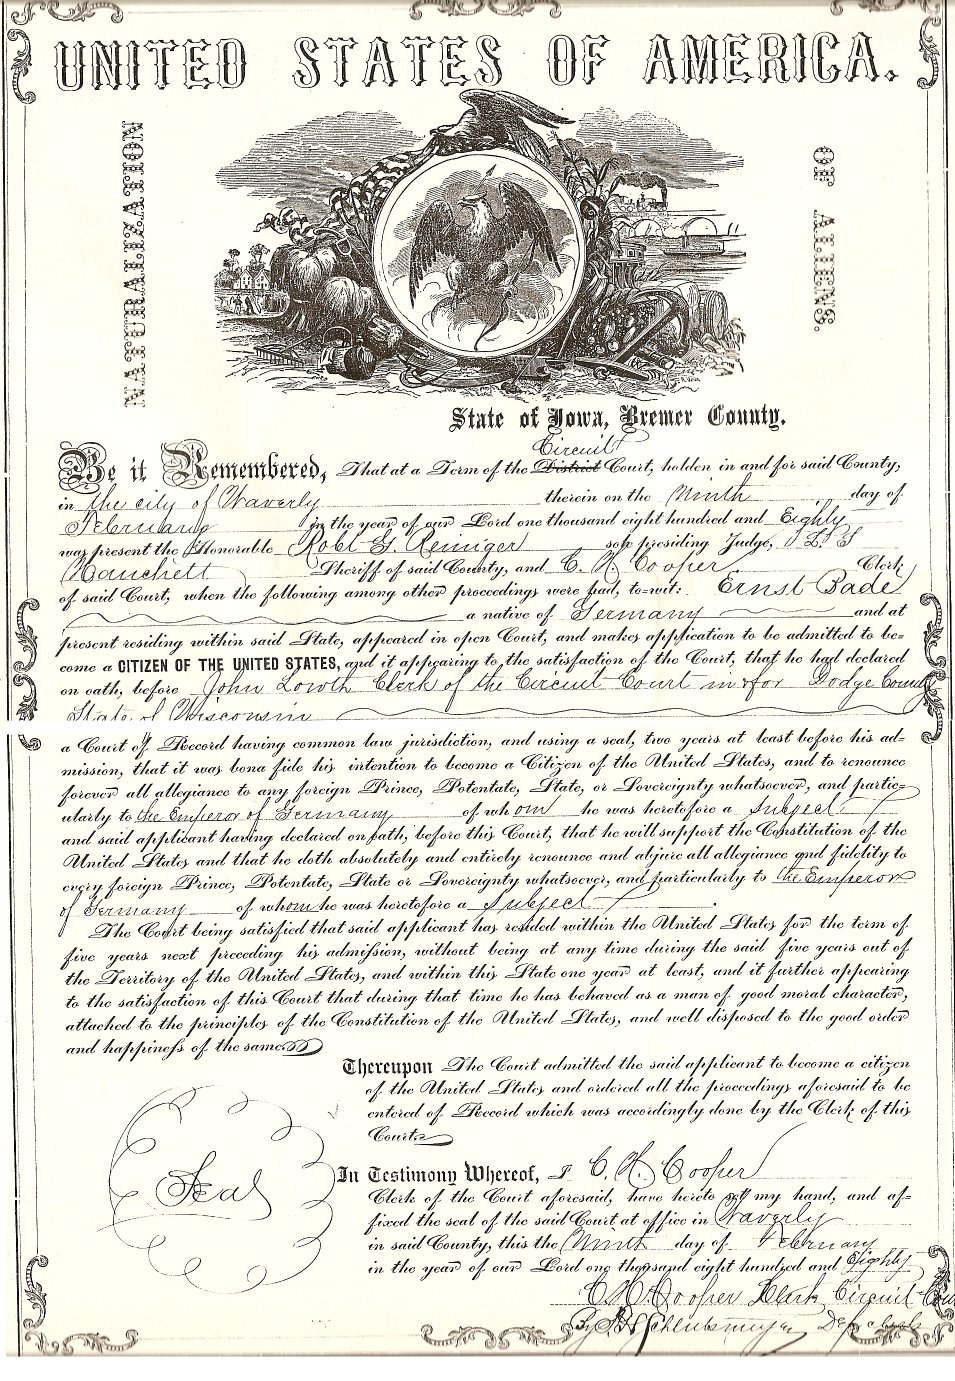 UNITED STATES OF AMERICA.
NATURALIZATION
OF ALIENS.
State of Iowa, Bremer County.
Circuit
Be it Remembered, That at a Term of the District Court, holden in and for said County,
in the city of Waverly therein on the Ninth day of
February in the year of our Lord one thousand eight hundred and Eighty
was present the Honorable Robt G. Reiniger sole presiding Judge,
Hanchett Sheriff of said County, and C. H. Cooper Clerk
of said Court, when the following among other proceedings were had, to-wit: Ernst Bade
a native of Germany and at
present residing within said State, appeared in open Court, and makes application to be admitted to be=
come a CITIZEN OF THE UNITED STATES, and it appearing to the satisfaction of the Court, that he had declared
on oath, before John Lowth Clerk of the Circuit Court in & for Dodge County
State of Wisconsin
a Court of Record having common law jurisdiction, and using a seal, two years at least before his ad=
mission, that it was bona fide his intention to become a Citizen of the United States, and to renounce
forever all allegiance to any foreign Prince, Potentate, State, or Sovereignty whatsoever, and partic=
ularly to the Emperor of Germany of whom he was heretofore a Subject
and said applicant having declared on oath, before this Court, that he will support the Constitution of the
United States and that he doth absolutely and entirely renounce and abjure all allegiance and fidelity to
every foreign Prince, Potentate, State or Sovereignty whatsoever, and particularly to the Emperor
of Germany of whom he was heretofore a Subject.
The Court being satisfied that said applicant has resided within the United States for the term of
five years next preceding his admission, without being at any time during the said five years out of
the Territory of the United States, and within this State one year at least, and it further appearing
to the satisfaction of this Court that during that time he has behaved as a man of good moral character,
attached to the principles of the Constitution of the United States, and well disposed to the good order
and happiness of the same.
Thereupon The Court admitted the said applicant to become a citizen
of the United States and ordered all the proceedings aforesaid to be
entered of Record which was accordingly done by the Clerk of this
Court.
Seal
In Testimony Whereof, I C. H. Cooper
Clerk of the Court aforesaid, have hereto set my hand, and af=
fixed the seal of the said Court at office in Waverly
in said County, this the Ninth day of February
in the year of our Lord one thousand eight hundred and Eighty
C. H. Cooper Clerk Circuit Cour
By